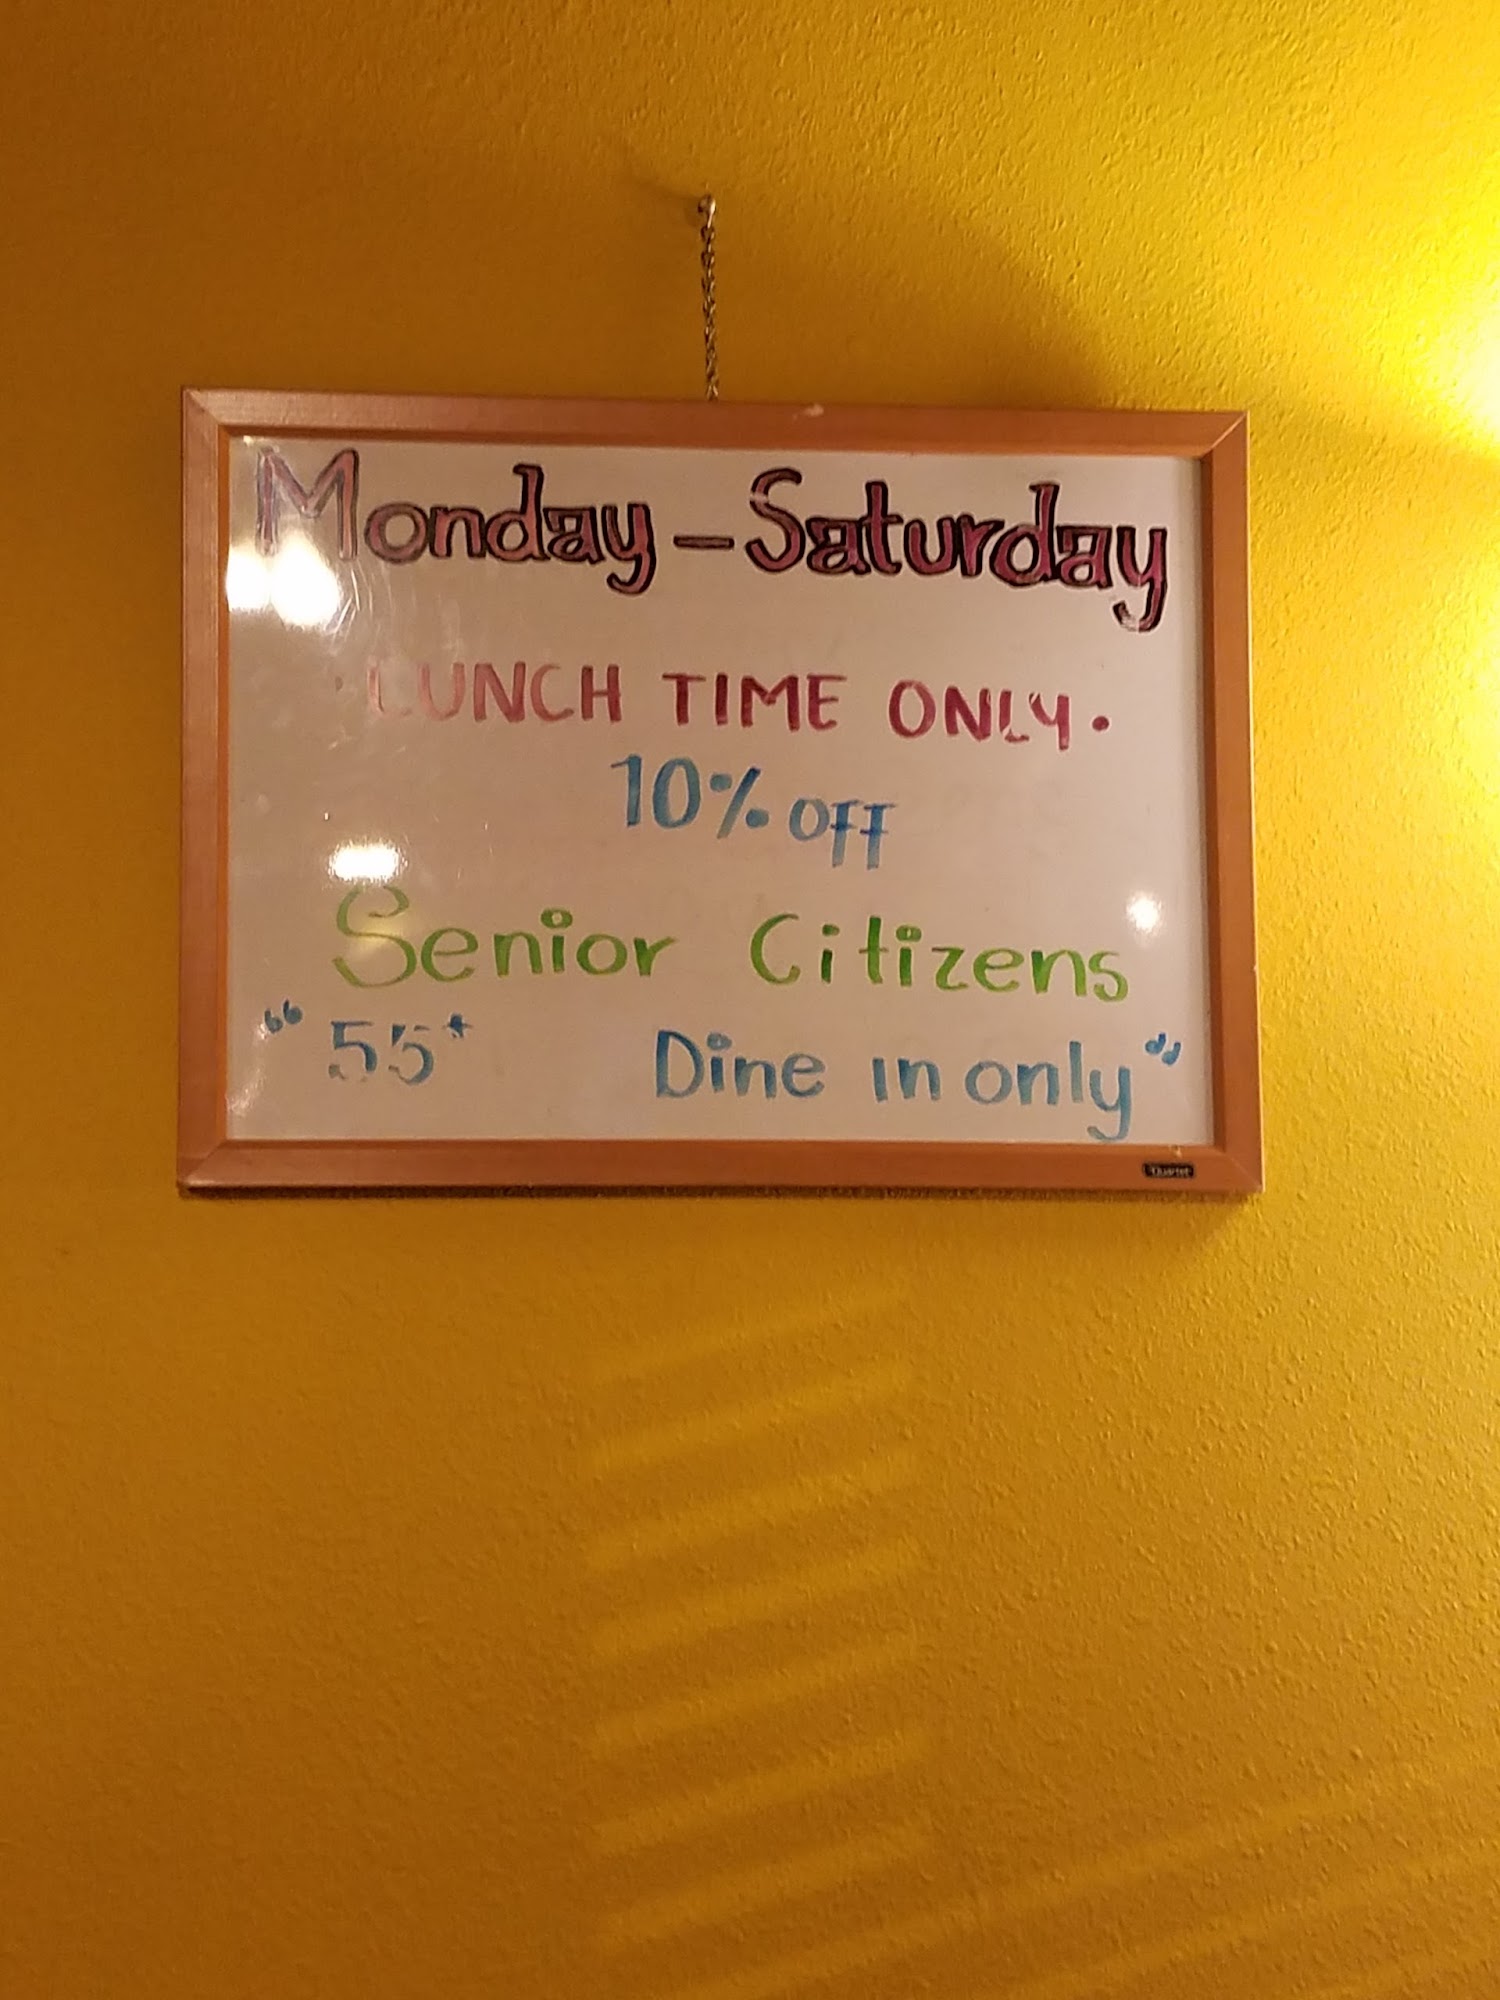 Monday - Saturday
LUNCH TIME ONLY.
10% OFF
Senior Citizens
“55+ Dine in only”
Quartet